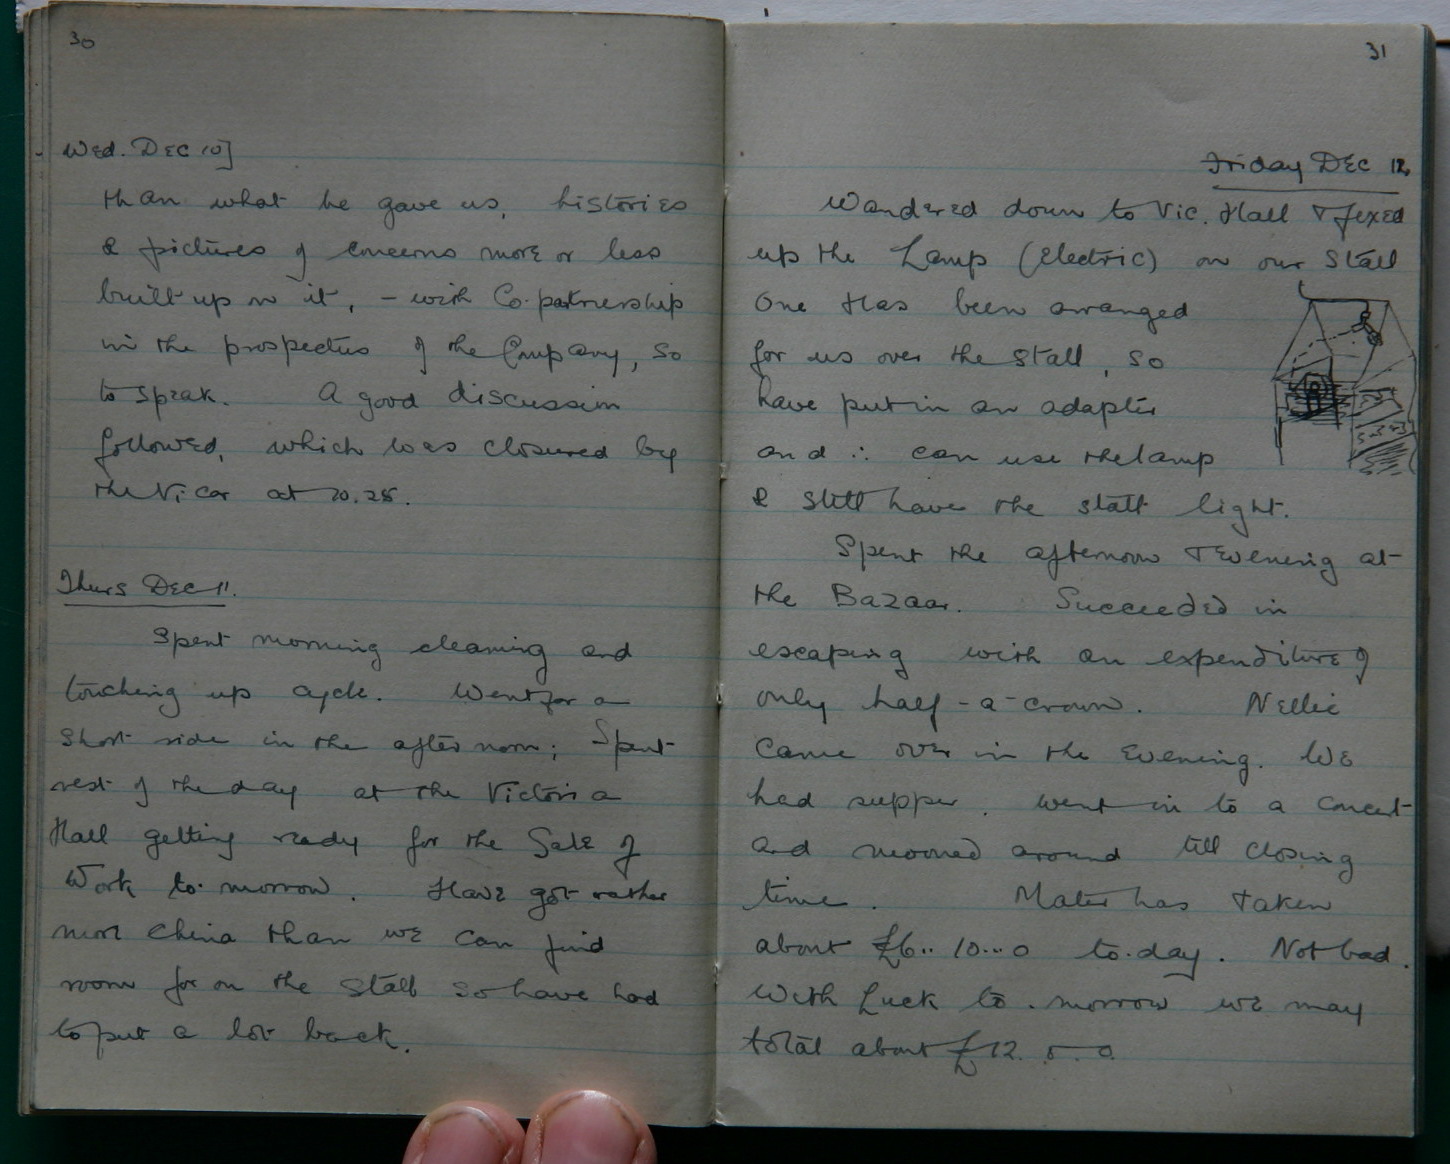 30
Wed. Dec 10]
than what he gave us, histories
& pictures of concerns more or less
built up on it, - with Co-partnership
in the prospectus of the Company, so
to speak. A good discussion
followed, which was closured by
the Vicar at 10.25.
Thurs Dec 11.
Spent morning cleaning and
touching up cycle. Went for a
short ride in the afternoon; Spent
rest of the day at the Victoria
Hall getting ready for the Sale of
Work to-morrow. Have got rather
more china than we can find
room for on the stall so have had
to put a lot back.
31
Friday Dec 12
Wandered down to Vic. Hall & fixed
up the Lamp (Electric) on our stall
One has been arranged
for us over the stall, so
have put in an adapter
and ∴ can use the lamp
& still have the stall light.
Spent the afternoon & evening at
the Bazaar. Succeeded in
escaping with an expenditure of
only half-a-crown. Nellie
came over in the evening. We
had supper. went in to a concert
and mooned around till closing
time. Mater has taken
about £6..10...0 to-day. Not bad.
With Luck to-morrow we may
total about £12. 0. 0